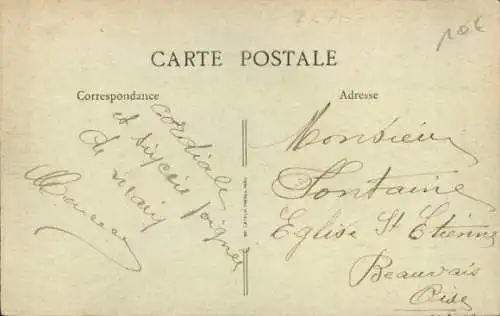 CARTE POSTALE
Correspondance
Adresse
cordiale
et sincère poignée
de main
Monsieur
Fontaine
Eglise St Etienne
Beauvais
Oise